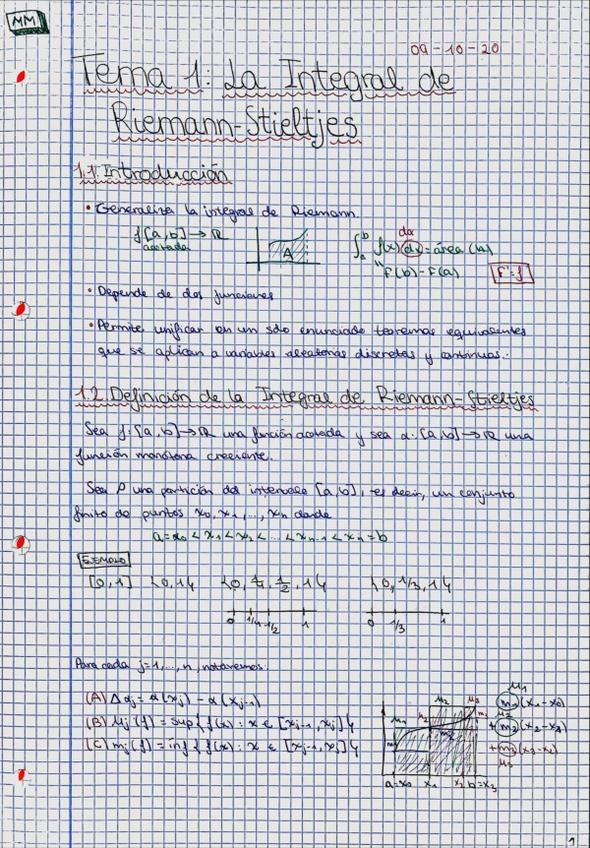 MM
09-10-20
Tema 1: La Integral de
Riemann-Stieltjes
1.1. Introducción
• Generaliza la integral de Riemann.
f[a,b] → ℝ
acotada
A
dα
∫ₐᵇ f(x) dx = área (A)
"
F(b)-F(a)
F'=f
• Depende de dos funciones
• Permite unificar en un sólo enunciado teoremas equivalentes
que se aplican a variables aleatorias discretas y continuas.
1.2. Definición de la Integral de Riemann-Stieltjes
Sea f:[a,b]→ℝ una función acotada y sea α:[a,b]→ℝ una
función monótona creciente.
Sea P una partición del intervalo [a,b], es decir, un conjunto
finito de puntos x₀, x₁, ..., xₙ donde
a=x₀ < x₁ < x₂ < ... < xₙ₋₁ < xₙ = b
EJEMPLO
[0,1] {0,1} {0, 1/4, 1/2, 1} {0, 1/3, 1}
0 1/4 1/2 1
0 1/3 1
Para cada j=1,...,n, notaremos:
(A) Δαj = α(xj) - α(xj-1)
(B) Mj(f) = sup{f(x) : x ∈ [xj-1, xj]}
(C) mj(f) = inf{f(x) : x ∈ [xj-1, xj]}
M₁
M₂
M₃
a=x₀ x₁ x₂ b=x₃
M₁
m₁(x₁-x₀)
M₂
+m₂(x₂-x₁)
+m₃(x₃-x₂)
M₃
1